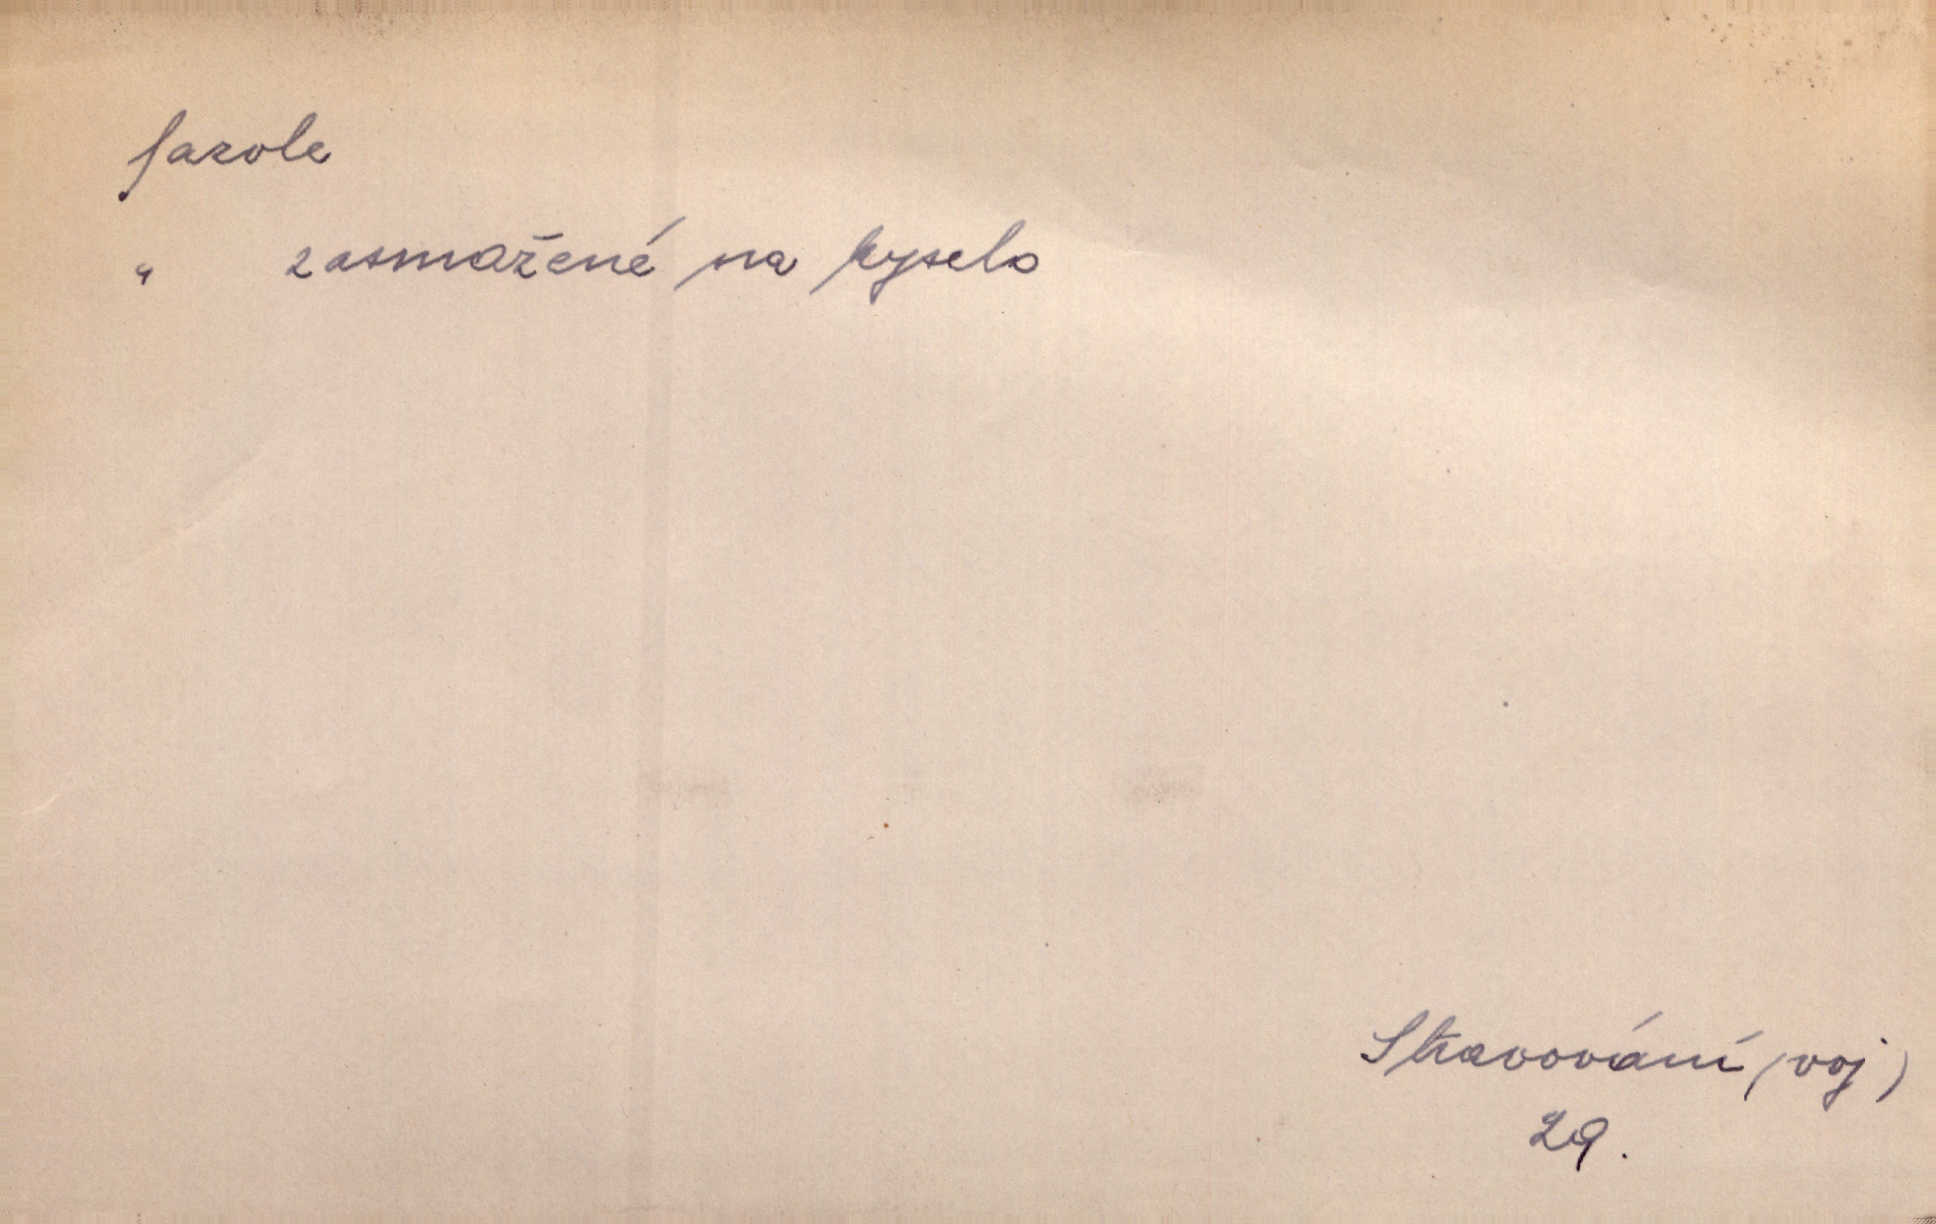 fazole
" zasmažené na kyselo
Stravování (voj)
29.